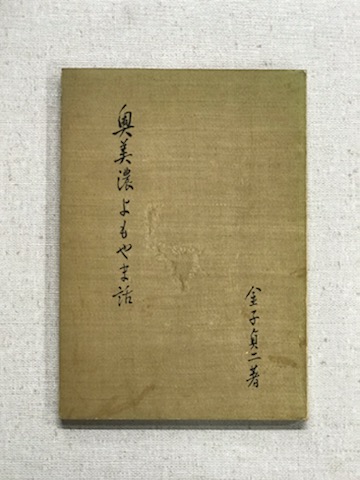 奥美濃よもやま話
金子貞二著